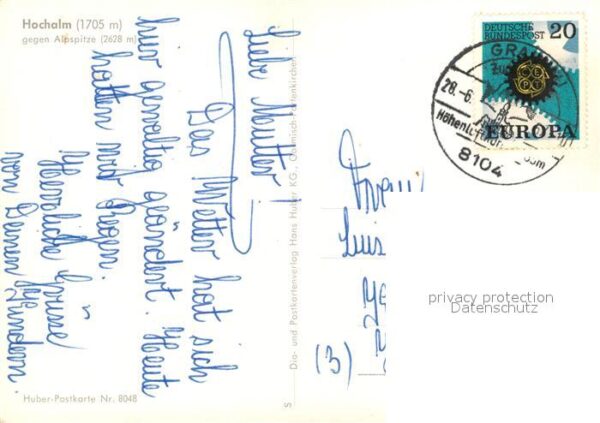 Hochalm (1705 m)
gegen Alpspitze (2628 m)
Liebe Mutter!
Das Wetter hat sich
hier gewaltig geändert. Heute
hatten wir Regen.
Herzliche Grüsse
von Deinen Kindern.
Huber-Postkarte Nr. 8048
Dia- und Postkartenverlag Hans Huber KG., Garmisch-Partenkirchen
S
DEUTSCHE
BUNDESPOST
20
CEPT
EUROPA
28.-6.
8104
(3)
privacy protection
Datenschutz